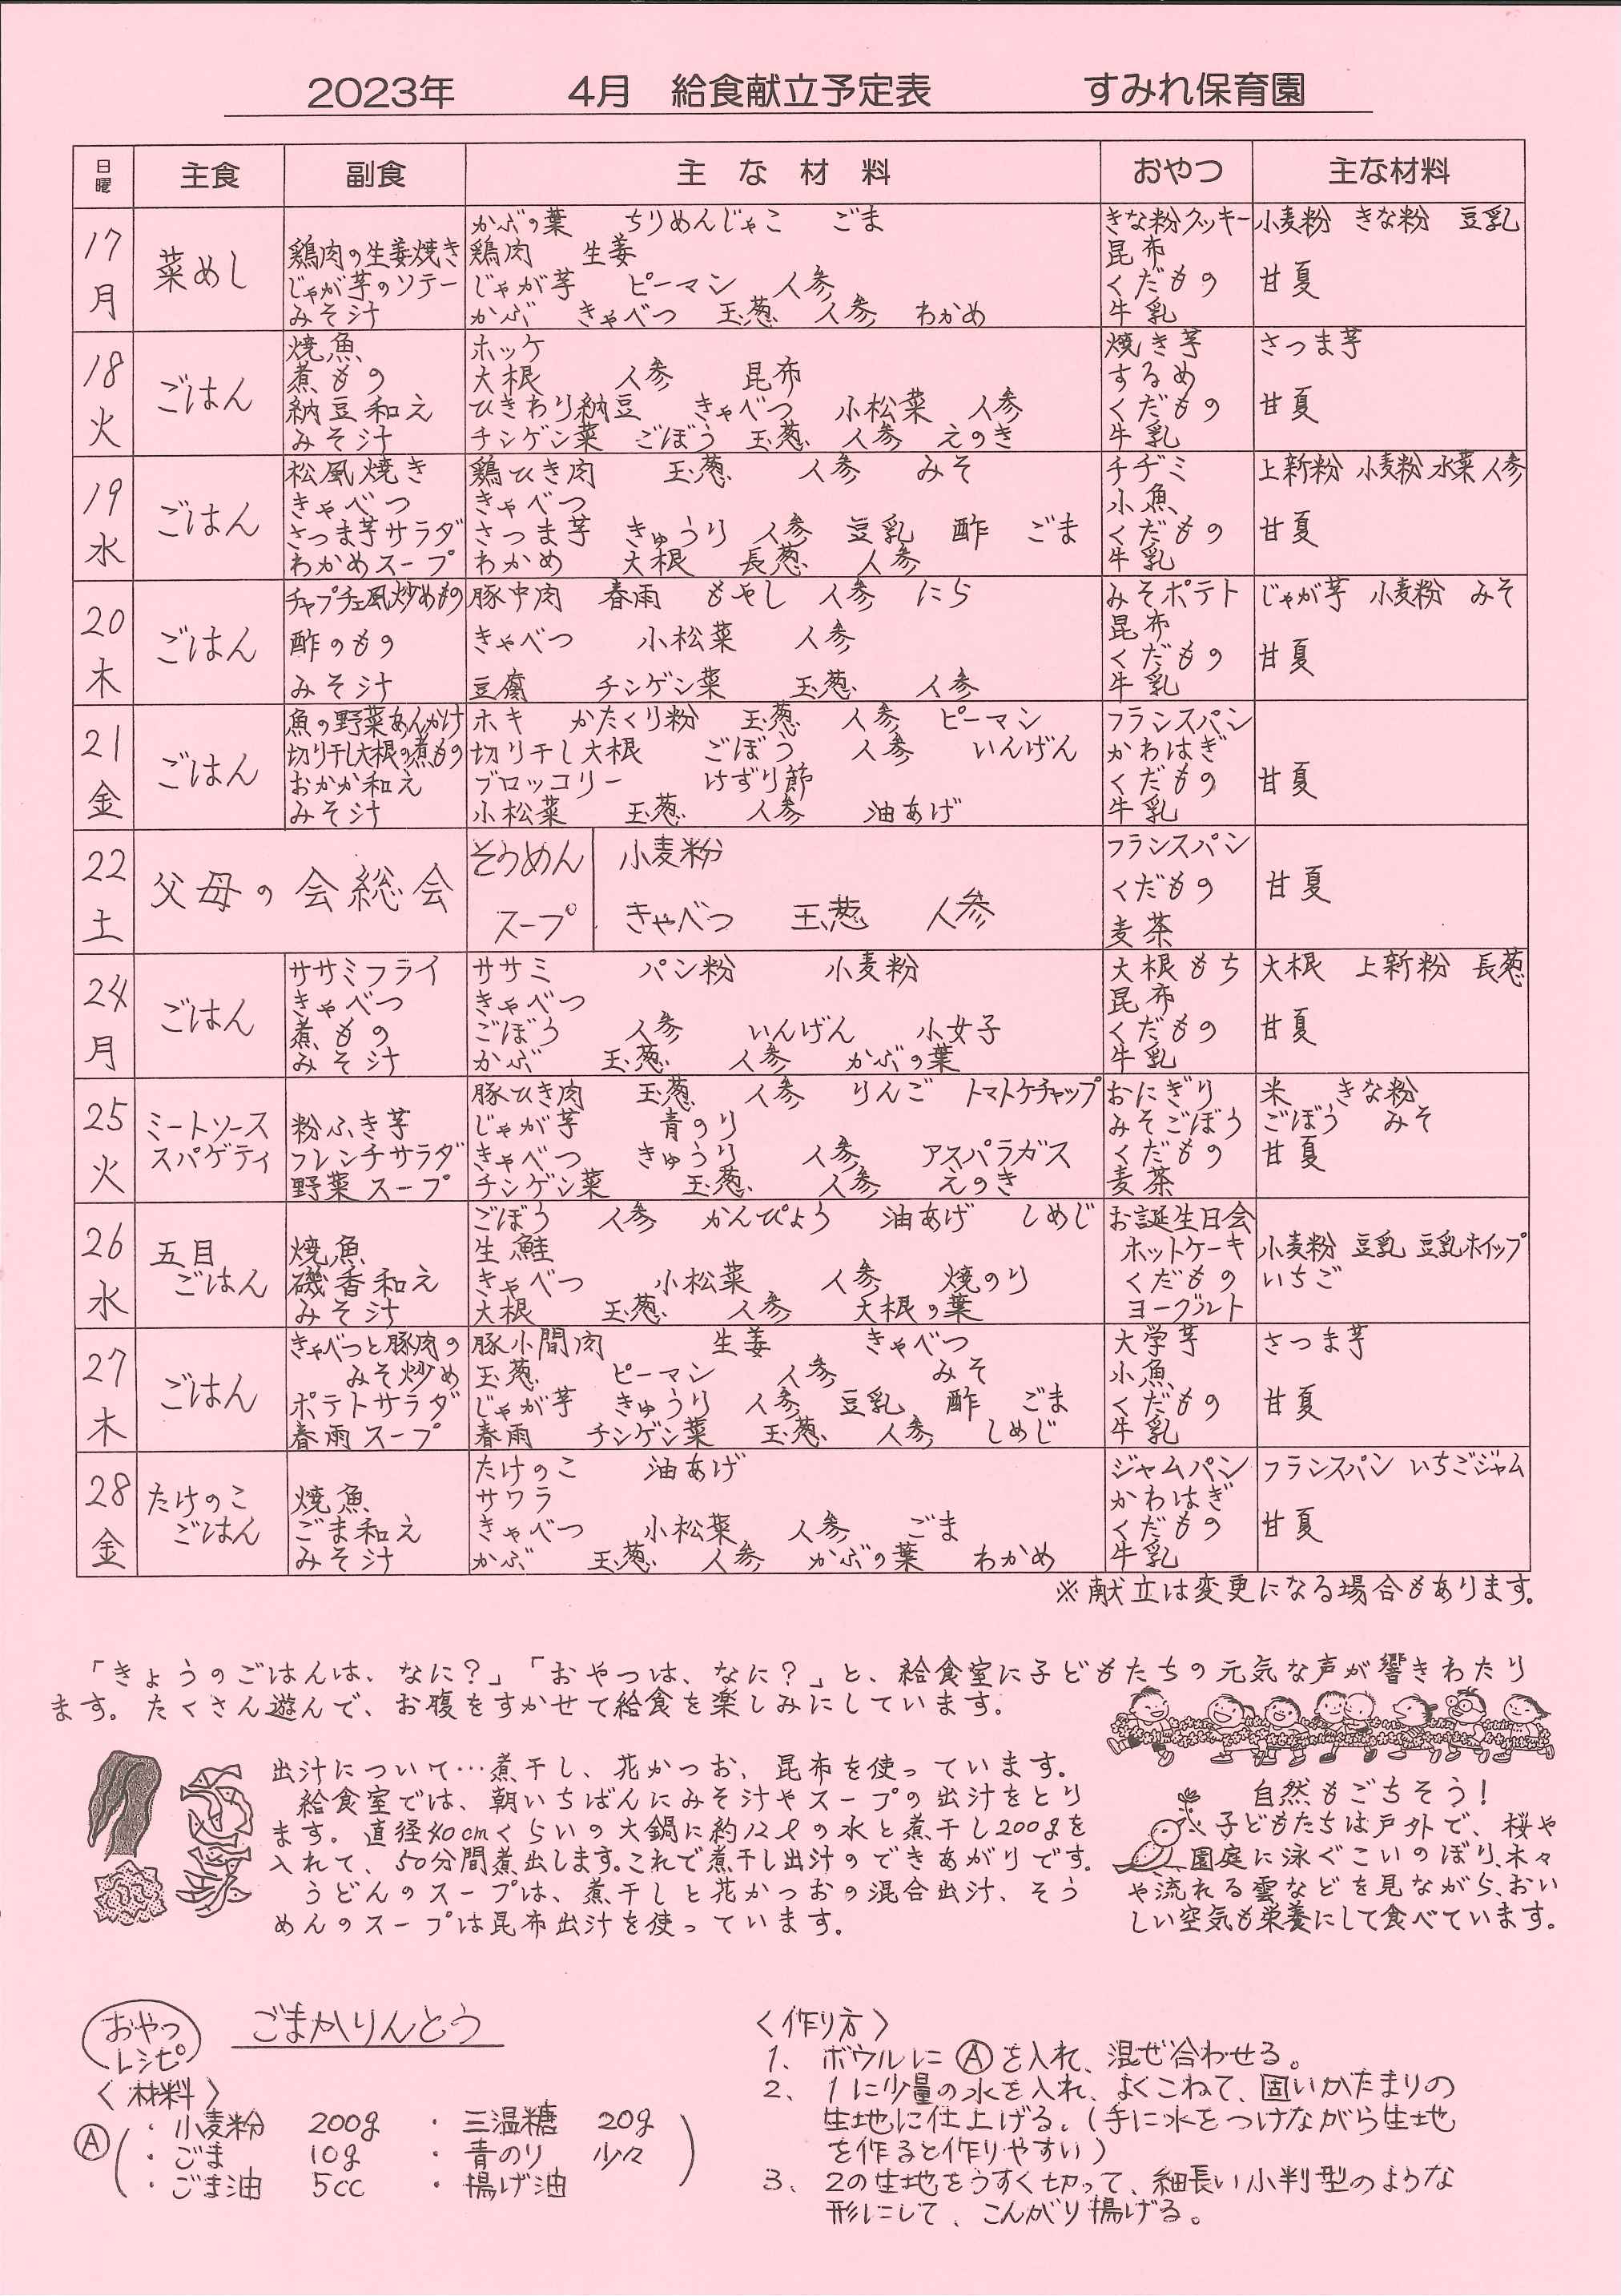 2023年 4月 給食献立予定表 すみれ保育園
日曜 主食 副食 主な材料 おやつ 主な材料
17 月 菜めし
かぶの葉 ちりめんじゃこ ごま きな粉クッキー 小麦粉 きな粉 豆乳
鶏肉の生姜焼き 鶏肉 生姜 昆布
じゃが芋のソテー じゃが芋 ピーマン 人参 くだもの 甘夏
みそ汁 かぶ きゃべつ 玉葱 人参 わかめ 牛乳
18 火 ごはん
焼魚 ホッケ 焼き芋 さつま芋
煮もの 大根 人参 昆布 するめ
納豆和え ひきわり納豆 きゃべつ 小松菜 人参 くだもの 甘夏
みそ汁 チンゲン菜 ごぼう 玉葱 人参 えのき 牛乳
19 水 ごはん
松風焼き 鶏ひき肉 玉葱 人参 みそ チヂミ 上新粉 小麦粉 水菜 人参
きゃべつ きゃべつ 小魚
さつま芋サラダ さつま芋 きゅうり 人参 豆乳 酢 ごま くだもの 甘夏
わかめスープ わかめ 大根 長葱 人参 牛乳
20 木 ごはん
チャプチェ風炒めもの 豚中肉 春雨 もやし 人参 にら みそポテト じゃが芋 小麦粉 みそ
昆布
酢のもの きゃべつ 小松菜 人参 くだもの 甘夏
みそ汁 豆腐 チンゲン菜 玉葱 人参 牛乳
21 金 ごはん
魚の野菜あんかけ ホキ かたくり粉 玉葱 人参 ピーマン フランスパン
切り干し大根の煮もの 切り干し大根 ごぼう 人参 いんげん かわはぎ
おかか和え ブロッコリー けずり節 くだもの 甘夏
みそ汁 小松菜 玉葱 人参 油あげ 牛乳
22 土 父母の会総会
そうめん 小麦粉 フランスパン
くだもの 甘夏
スープ きゃべつ 玉葱 人参 麦茶
24 月 ごはん
ササミフライ ササミ パン粉 小麦粉 大根もち 大根 上新粉 長葱
きゃべつ きゃべつ 昆布
煮もの ごぼう 人参 いんげん 小女子 くだもの 甘夏
みそ汁 かぶ 玉葱 人参 かぶの葉 牛乳
25 火 ミートソース スパゲティ
豚ひき肉 玉葱 人参 りんご トマトケチャップ おにぎり 米 きな粉
粉ふき芋 じゃが芋 青のり みそごぼう ごぼう みそ
フレンチサラダ きゃべつ きゅうり 人参 アスパラガス くだもの 甘夏
野菜スープ チンゲン菜 玉葱 人参 えのき 麦茶
26 水 五目ごはん
ごぼう 人参 かんぴょう 油あげ しめじ お誕生日会
焼魚 生鮭 ホットケーキ 小麦粉 豆乳 豆乳ホイップ
磯香和え きゃべつ 小松菜 人参 焼のり くだもの いちご
みそ汁 大根 玉葱 人参 大根の葉 ヨーグルト
27 木 ごはん
きゃべつと豚肉の 豚小間肉 生姜 きゃべつ 大学芋 さつま芋
みそ炒め 玉葱 ピーマン 人参 みそ 小魚
ポテトサラダ じゃが芋 きゅうり 人参 豆乳 酢 ごま くだもの 甘夏
春雨スープ 春雨 チンゲン菜 玉葱 人参 しめじ 牛乳
28 金 たけのこごはん
たけのこ 油あげ ジャムパン フランスパン いちごジャム
焼魚 サワラ かわはぎ
ごま和え きゃべつ 小松菜 人参 ごま くだもの 甘夏
みそ汁 かぶ 玉葱 人参 かぶの葉 わかめ 牛乳
※献立は変更になる場合もあります。
「きょうのごはんは、なに?」「おやつは、なに?」と、給食室に子どもたちの元気な声が響きわたり
ます。たくさん遊んで、お腹をすかせて給食を楽しみにしています。
出汁について…煮干し、花かつお、昆布を使っています。
給食室では、朝いちばんにみそ汁やスープの出汁をとり
ます。直径40cmくらいの大鍋に約12ℓの水と煮干し200gを
入れて、50分間煮出します。これで煮干し出汁のできあがりです。
うどんのスープは、煮干しと花かつおの混合出汁、そう
めんのスープは昆布出汁を使っています。
自然もごちそう!
子どもたちは戸外で、桜や
園庭に泳ぐこいのぼり、木々
や流れる雲などを見ながら、おい
しい空気も栄養にして食べています。
おやつ
レシピ
ごまかりんとう
〈材料〉
Ⓐ
・小麦粉 200g ・三温糖 20g
・ごま 10g ・青のり 少々
・ごま油 5cc ・揚げ油
〈作り方〉
1、ボウルにⒶを入れ、混ぜ合わせる。
2、1に少量の水を入れ、よくこねて、固いかたまりの
生地に仕上げる。(手に水をつけながら生地
を作ると作りやすい)
3、2の生地をうすく切って、細長い小判型のような
形にして、こんがり揚げる。